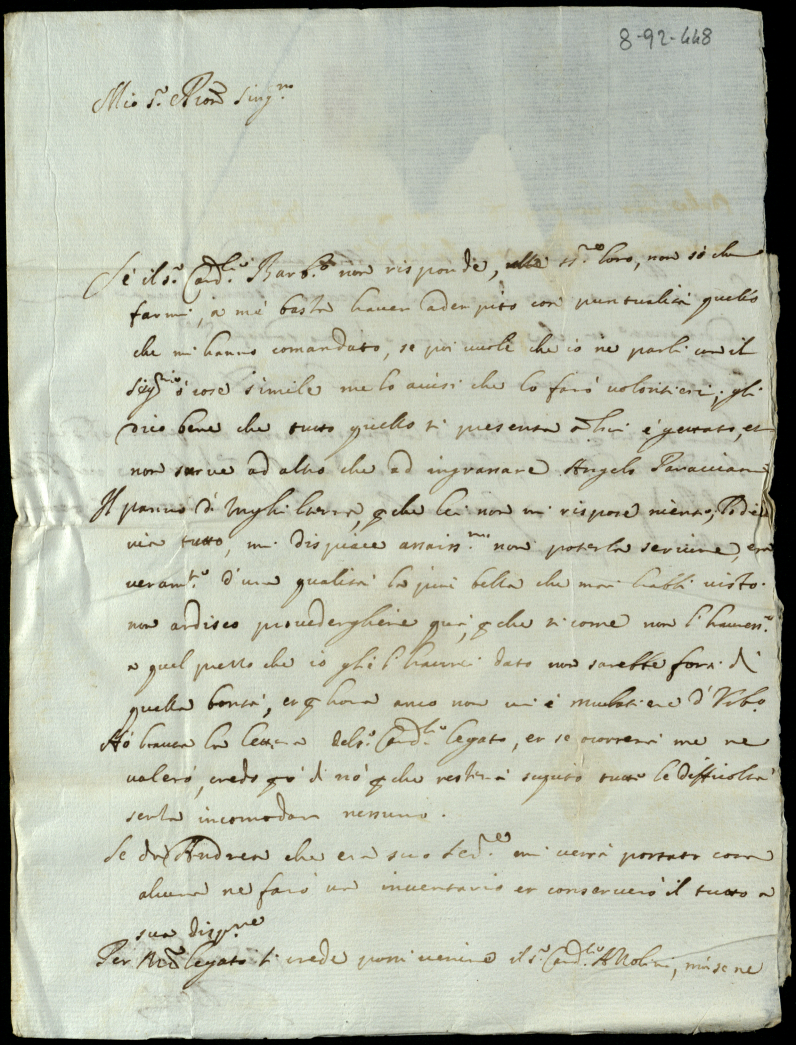 8-92-448
Mio s.r Pron Sing.mo
Se il s.r Card.le Barb.o non risponde, alle SS.rie loro, non so che
farmi, a me basta haver adempito con puntualità quello
che mi hanno comandato, se poi vuole che io ne parli con il
ò cose simile me lo avisi che lo farò volontieri; gli
dico bene che tutto quello si presenta a lui è gettato, et
non serve ad altro che ad ingrassare Angelo
Il panno d'Inghilterra, che lei non mi rispose niente,
via tutto, mi dispiace assaiss.mo non poterla servire, era
veram.te d'una qualità la più bella che mai habbi visto.
non ardisco provederghene quà, che si come non l'
a quel prezzo che io ghe l'haverei dato non sarebbe forsi di
quella bontà, et hora anco non vi è mulatiere d'Urb.o
Hò hauta la lettera del s.r Card.le legato, et se ocorrerà me ne
valerò, credo di nò che resterà tutte le difficoltà
senza incomodar nessuno.
Se Andrea che era suo ser.re mi verrà portato cosa
alcuna ne farò un inventario et conserverò il tutto a
sua disp.ne
Per legato si crede possi venire il s.r Card.le mà se ne